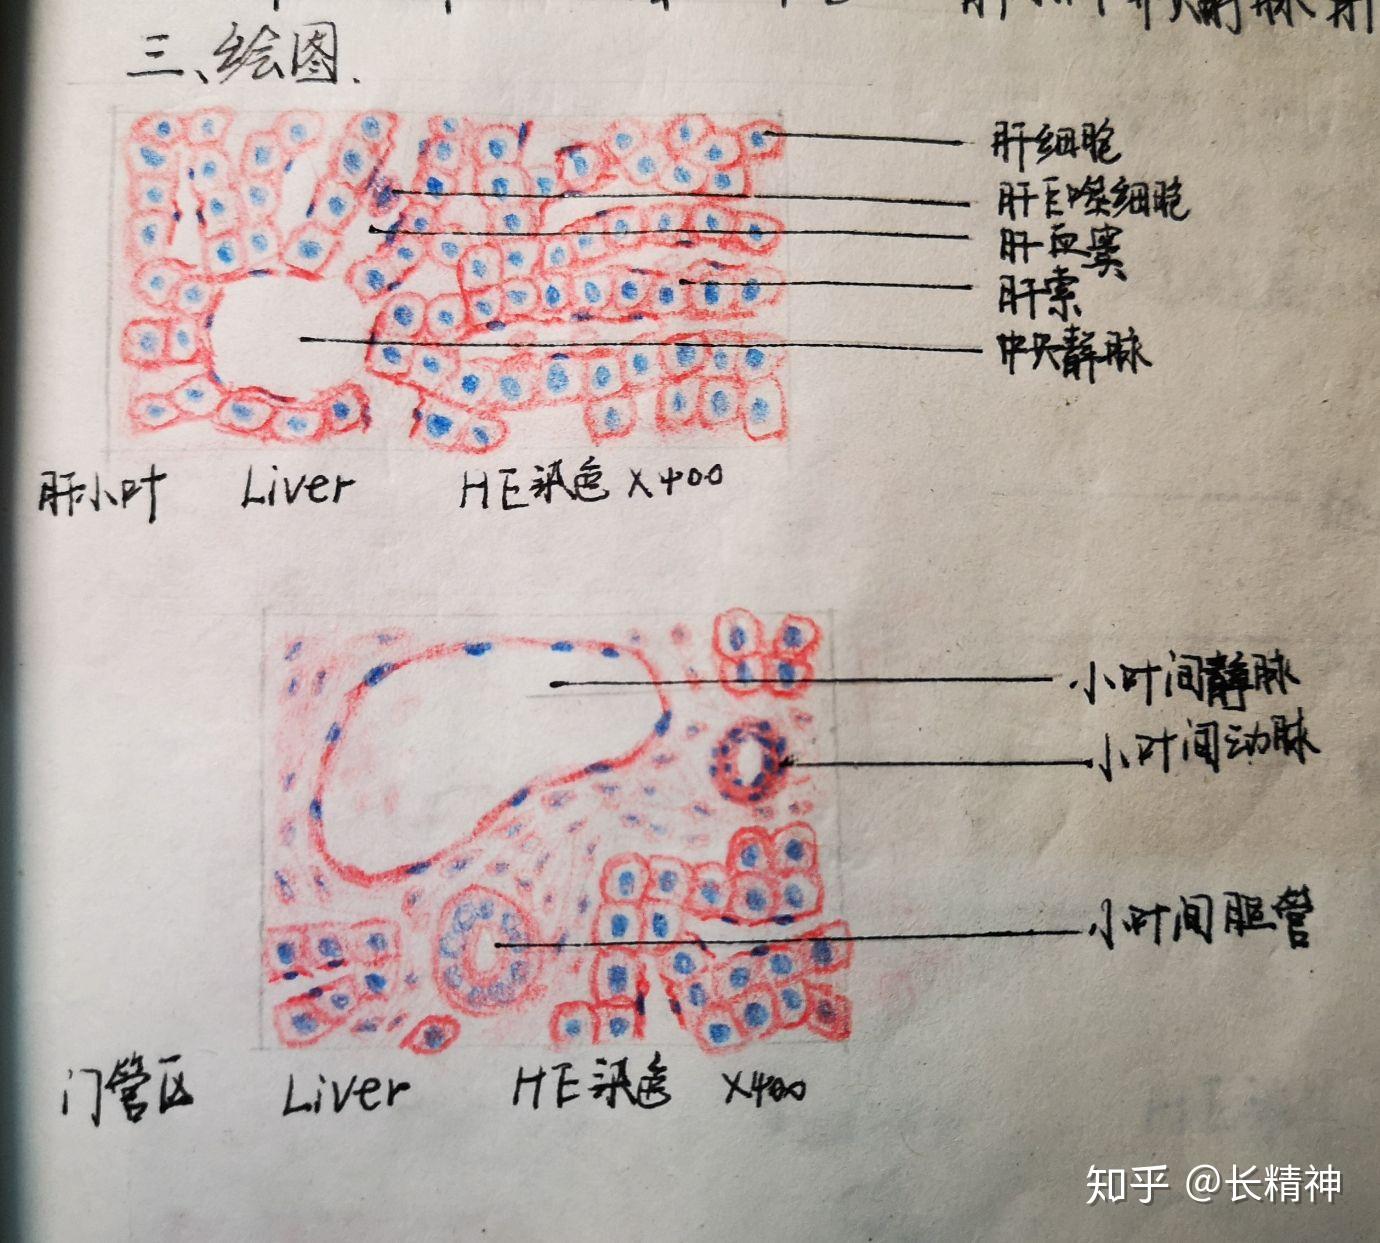 三、绘图.
肝细胞
肝巨噬细胞
肝血窦
肝索
中央静脉
肝小叶 Liver HE染色 ×400
小叶间静脉
小叶间动脉
小叶间胆管
门管区 Liver HE染色 ×400
知乎 @长精神